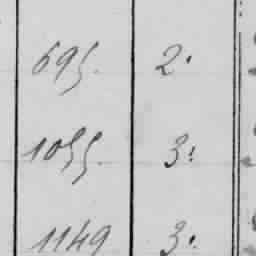 695. 2.
1055. 3.
1149 3.